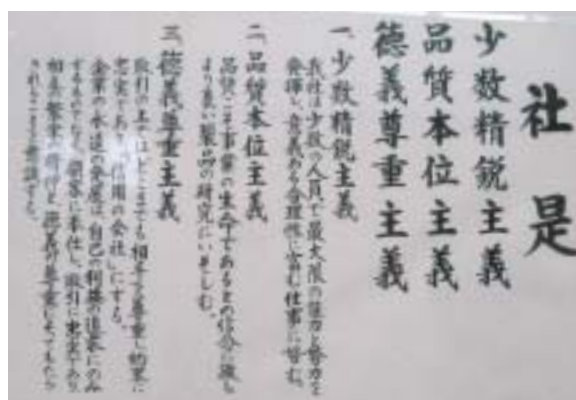 社是
少数精鋭主義
品質本位主義
徳義尊重主義
一、少数精鋭主義
我社は少数の人員で最大限の能力と努力を
発揮し、意義ある合理性に富む仕事に甘む。
二、品質本位主義
品質こそ事業の生命であるとの信念に徹し
より良い製品の研究にいそしむ。
三、徳義尊重主義
取引の上ではどこまでも相手を尊重し約束に
忠実であり「信用の会社」にする。
企業の永遠の発展は、自己の利益の追求にのみ
するものでなく、顧客に奉仕し、取引に忠実であり
相互の繁栄の
されることを意識する。